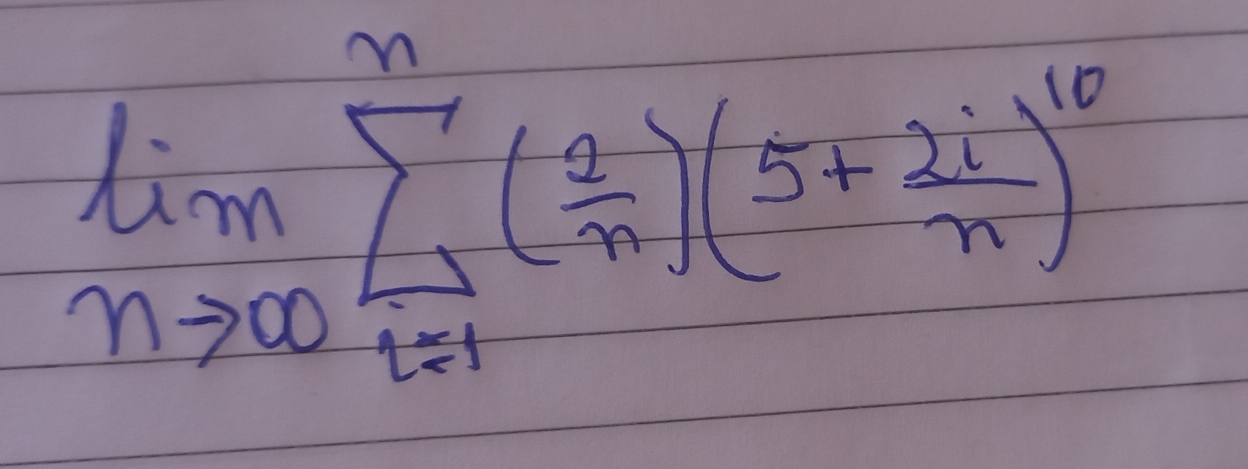 lim n→∞ n Σ i=1 (2/n)(5 + 2i/n)^10